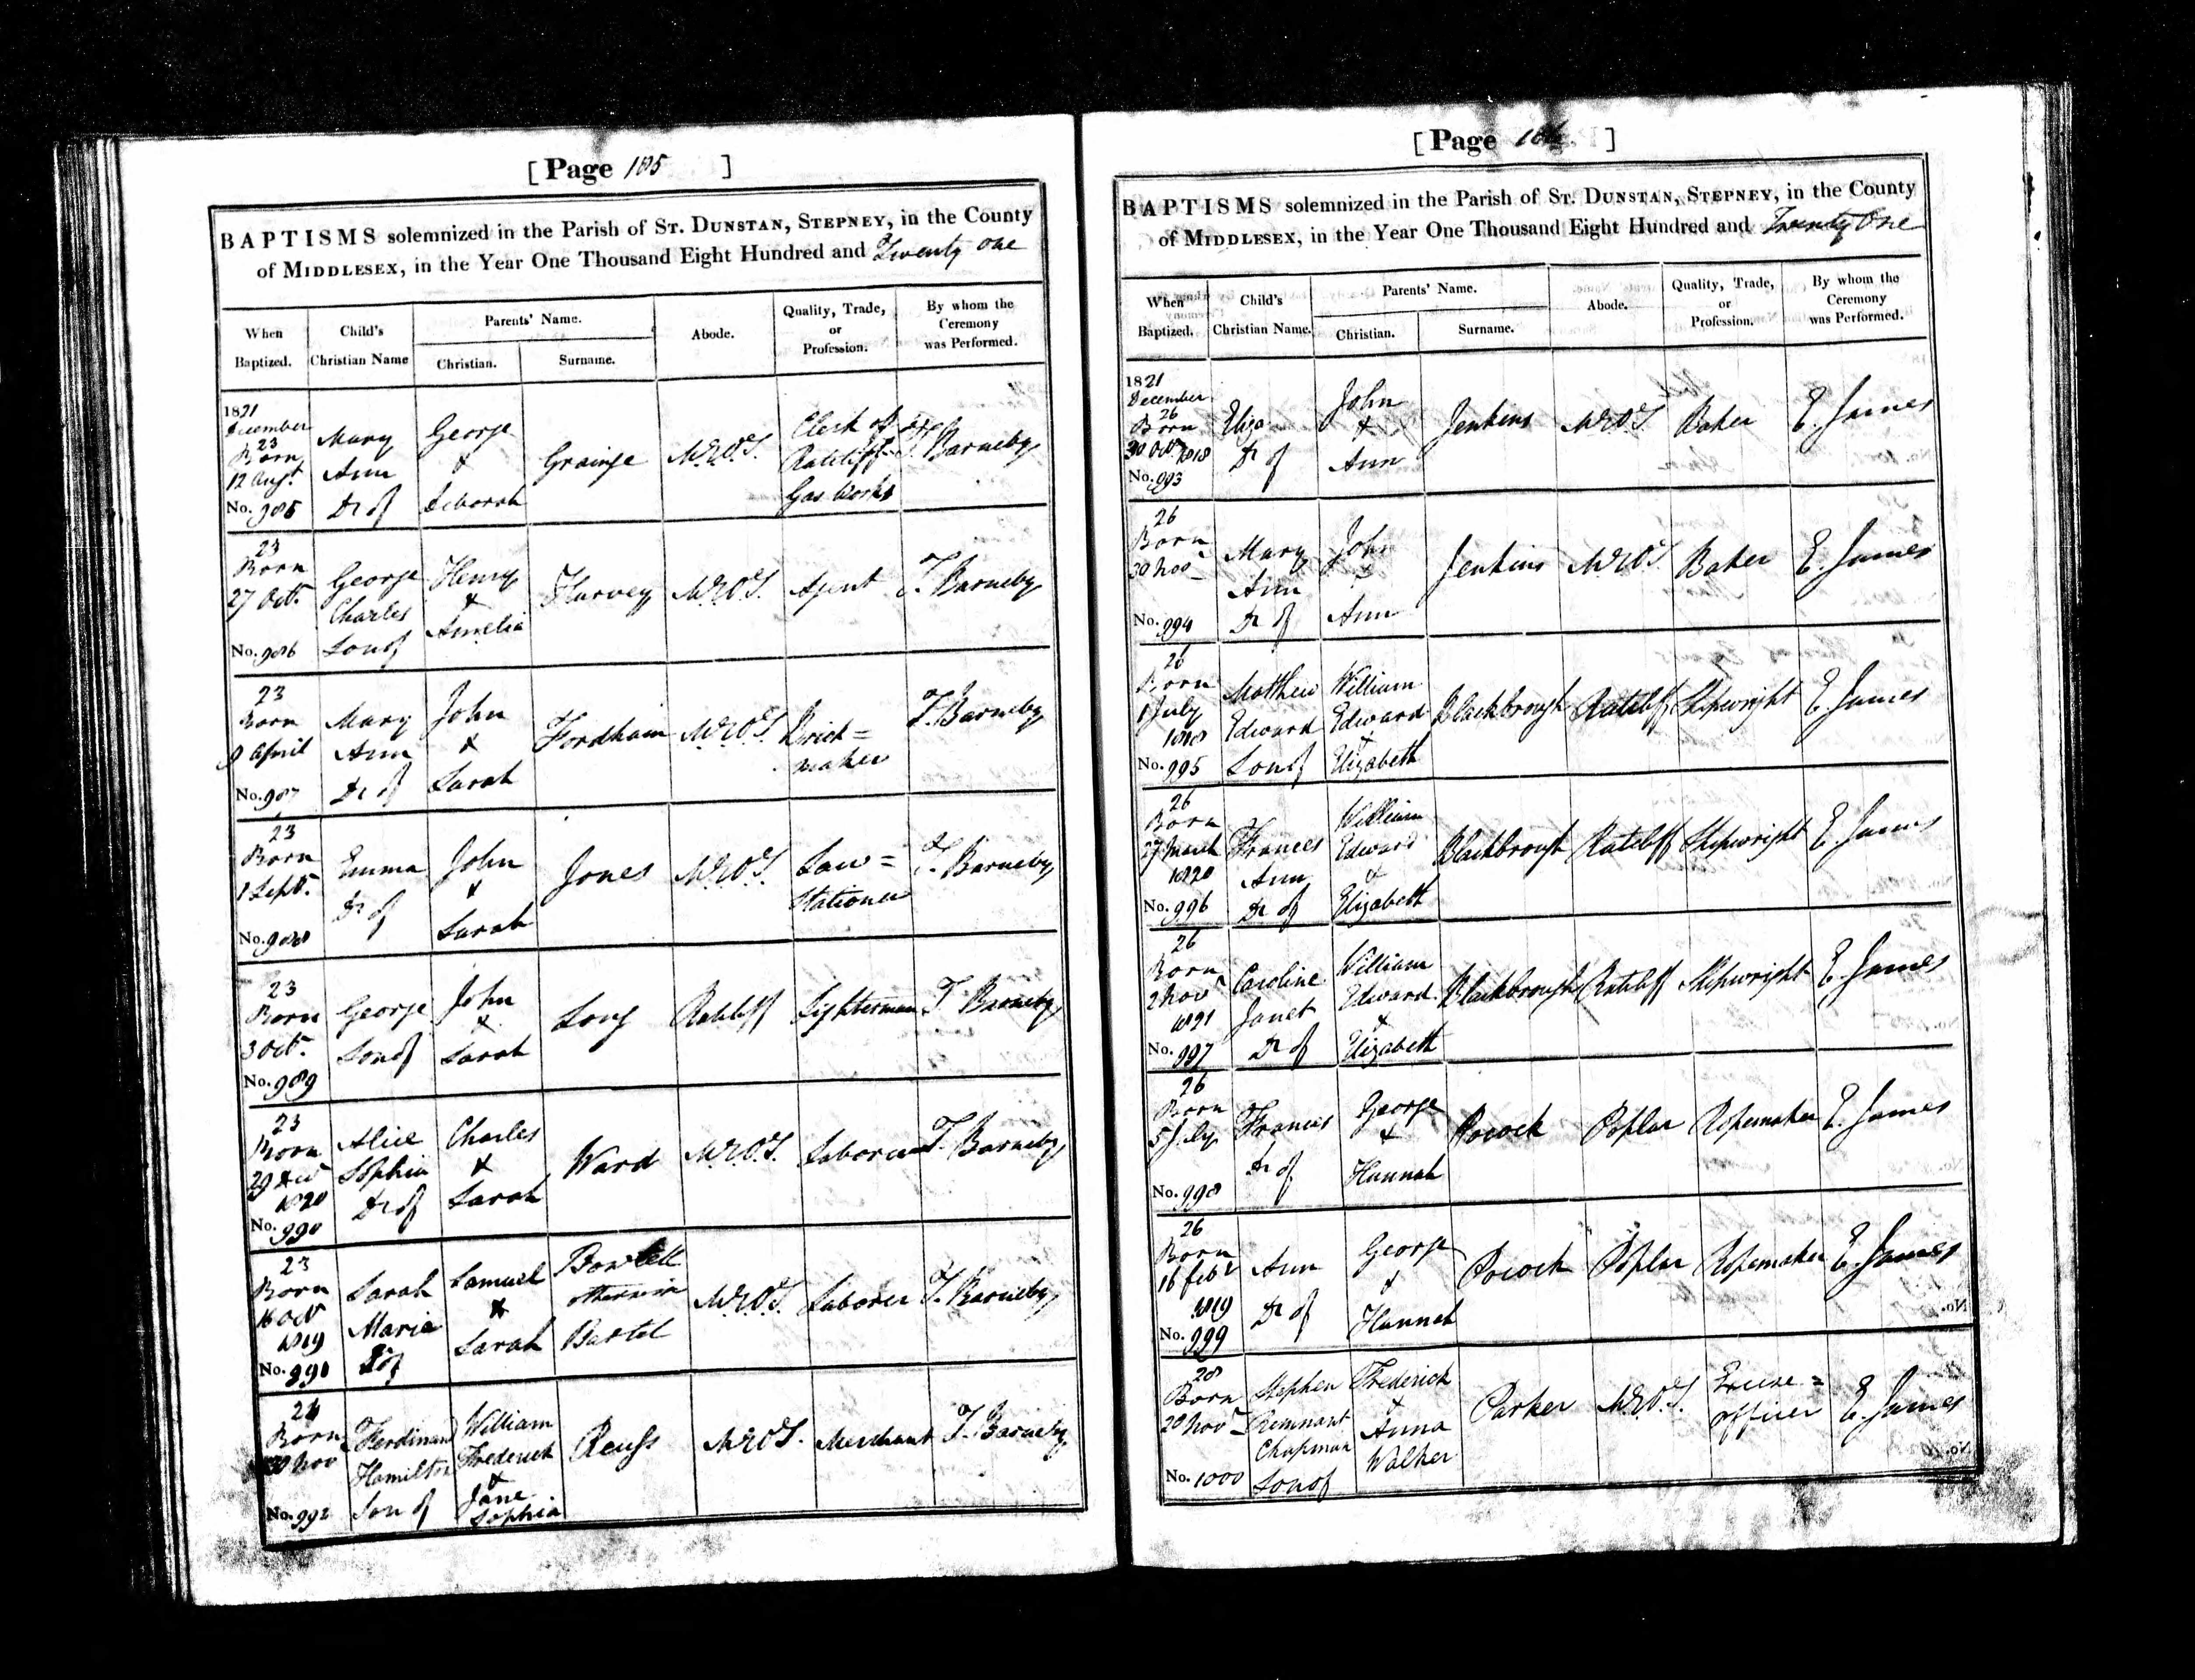 [ Page 185 ]
BAPTISMS solemnized in the Parish of ST. DUNSTAN, STEPNEY, in the County
of MIDDLESEX, in the Year One Thousand Eight Hundred and Twenty one
When Baptized.
Child's Christian Name
Parents' Name.
Christian.
Surname.
Abode.
Quality, Trade, or Profession.
By whom the Ceremony was Performed.
1821
December
23
Born
12 Augt
No. 985
Mary
Ann
Dr of
George
&
Deborah
Grainge
M.E.O.T.
Clerk of
Ratcliff
Gas Works
T. Barneby
23
Born
27 Oct.
No. 986
George
Charles
Son of
Henry
&
Amelia
Harvey
M.E.O.T.
Agent
T. Barneby
23
Born
9 April
No. 987
Mary
Ann
Dr of
John
&
Sarah
Fordham
M.E.O.T.
Brick=
maker
T. Barneby
23
Born
1 Sept.
No. 988
Emma
Dr of
John
&
Sarah
Jones
M.E.O.T.
Law=
Stationer
T. Barneby
23
Born
3 Oct.
No. 989
George
Son of
John
&
Sarah
Long
Ratcliff
Lighterman
T. Barneby
23
Born
29 Dec
1820
No. 990
Alice
Sophia
Dr of
Charles
&
Sarah
Ward
M.E.O.T.
Laborer
T. Barneby
23
Born
16 Oct
1819
No. 991
Sarah
Maria
D of
Samuel
&
Sarah
Bowtell
otherwise
Bartel
M.E.O.T.
Laborer
T. Barneby
Born
Nov
No. 992
Ferdinand
Hamilton
Son of
William
Frederick
&
Jane
Sophia
Reuss
M.E.O.T.
Merchant
T. Barneby
[ Page ]
BAPTISMS solemnized in the Parish of ST. DUNSTAN, STEPNEY, in the County
of MIDDLESEX, in the Year One Thousand Eight Hundred and Twenty One
When Baptized.
Child's Christian Name.
Parents' Name.
Christian.
Surname.
Abode.
Quality, Trade, or Profession.
By whom the Ceremony was Performed.
1821
December
26
Born
30 Oct 1818
No. 993
Eliza
Dr of
John
&
Ann
Jenkins
M.E.O.T.
Baker
E. James
26
Born
30 Nov
No. 994
Mary
Ann
Dr of
John
&
Ann
Jenkins
M.E.O.T.
Baker
E. James
26
Born
1 July
1818
No. 995
Matthew
Edward
Son of
William
Edward
&
Elizabeth
Blackbrough
Ratcliff
Shipwright
E. James
26
Born
27 March
1820
No. 996
Frances
Ann
Dr of
William
Edward
&
Elizabeth
Blackbrough
Ratcliff
Shipwright
E. James
26
Born
2 Nov
1821
No. 997
Caroline
Janet
Dr of
William
Edward
&
Elizabeth
Blackbrough
Ratcliff
Shipwright
E. James
26
Born
5 July
No. 998
Frances
Dr of
George
&
Hannah
Pocock
Poplar
Ropemaker
E. James
26
Born
16 Feb
1819
No. 999
Ann
Dr of
George
&
Hannah
Pocock
Poplar
Ropemaker
E. James
28
Born
20 Nov
No. 1000
Stephen
Remnant
Chapman
Son of
Frederick
&
Anna
Walker
Parker
M.E.O.T.
Excise=
officer
E. James